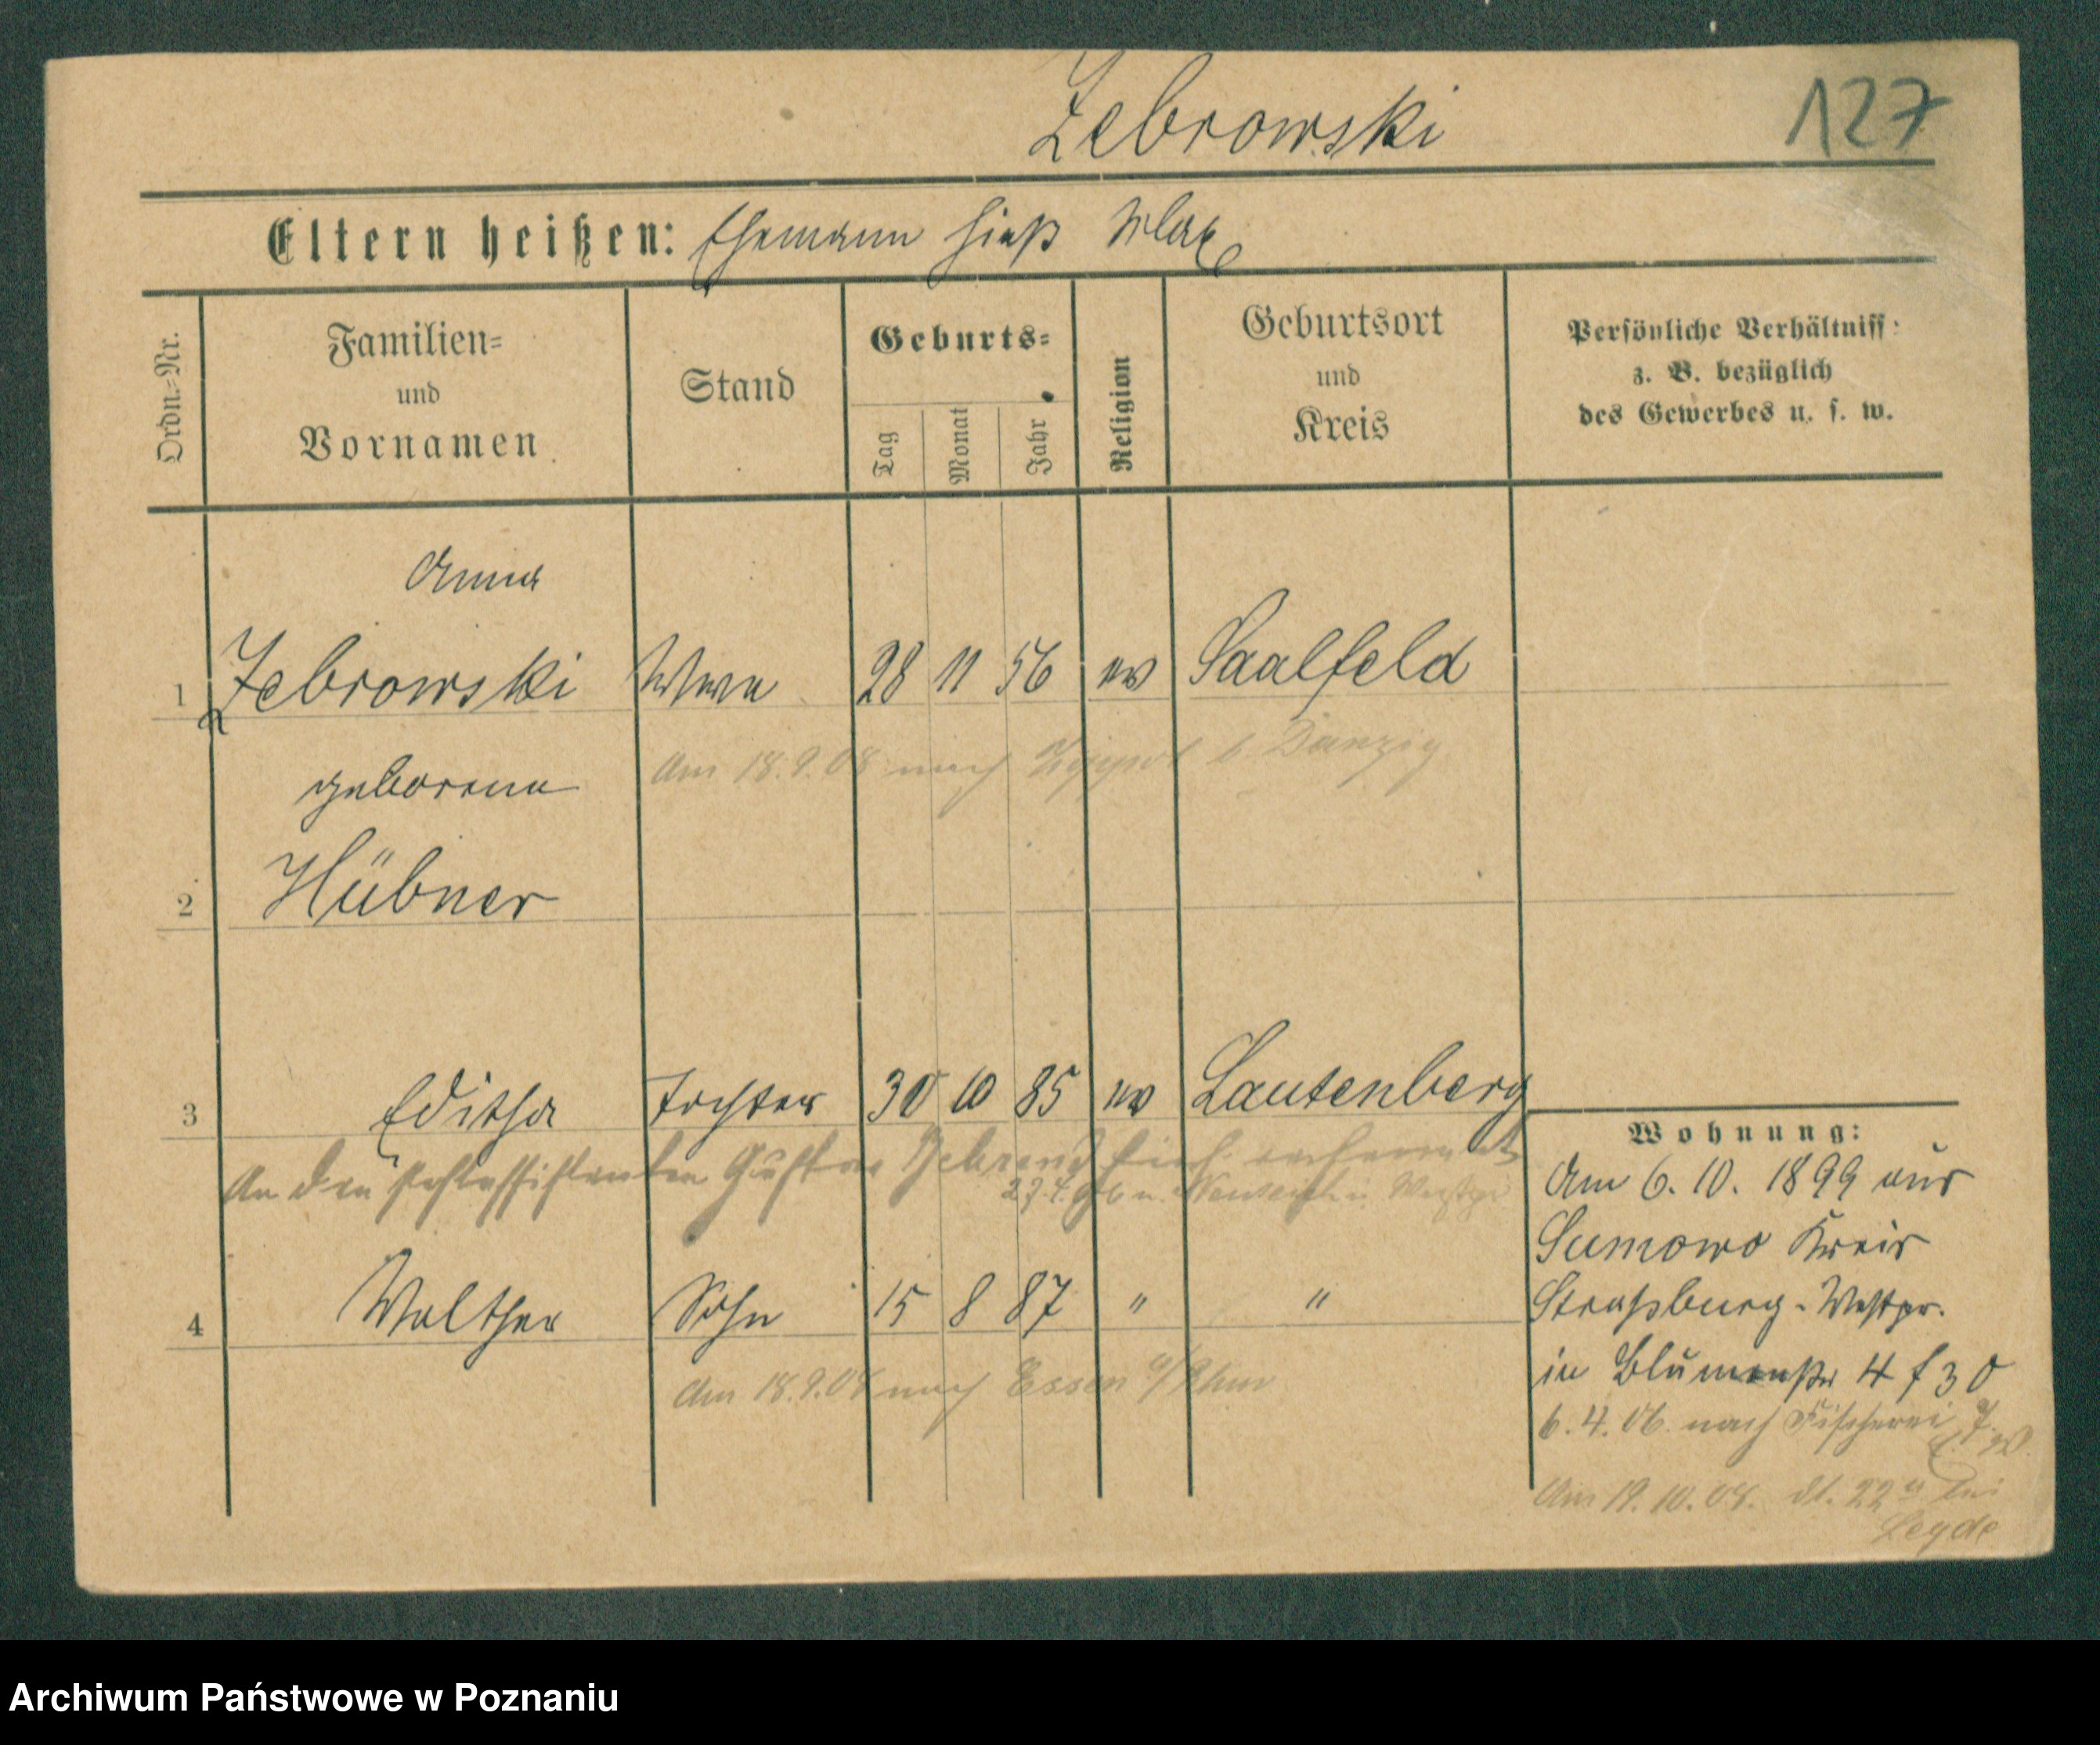 Zebrowski
127
Eltern heißen: Ehemann hieß Max
Ordn.-Nr.
Familien-
und
Vornamen
Stand
Geburts-
Tag
Monat
Jahr
Religion
Geburtsort
und
Kreis
Persönliche Verhältniss
z. B. bezüglich
des Gewerbes u. s. w.
Anna
1 Zebrowski Wwe 28 11 56 ev Saalfeld
Am 18.9.08 nach Zoppot b. Danzig
geborene
2 Hübner
3 Editha Tochter 30 10 85 ev Lautenberg
An den Postassistenten Gustav
4 Walther Sohn 15 8 87 " "
Am 18.9.08 nach Essen a/Ruhr
Wohnung:
Am 6. 10. 1899 aus
Sumowo Kreis
Straßburg - Westpr.
in Blumenstr 4
6. 4. 06. nach Fischerei 7.
Am 19. 10. 08. 22 bei
Leyde
Archiwum Państwowe w Poznaniu